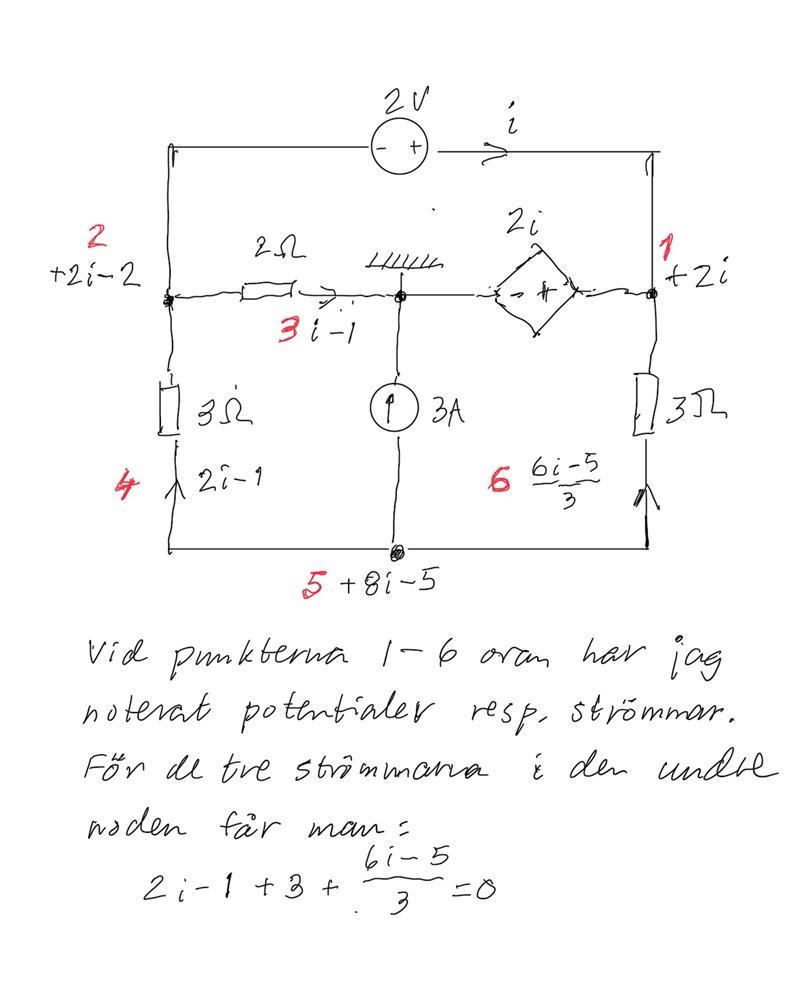 2V
i
- +
2
+2i-2
2Ω
2i
1
+2i
- +
3 i-1
3Ω
3A
3Ω
4
2i-1
6 6i-5
3
5 +8i-5
Vid punkterna 1-6 ovan har jag
noterat potentialer resp. strömmar.
För de tre strömmarna i den undre
noden får man:
2i-1+3+ 6i-5/3 =0